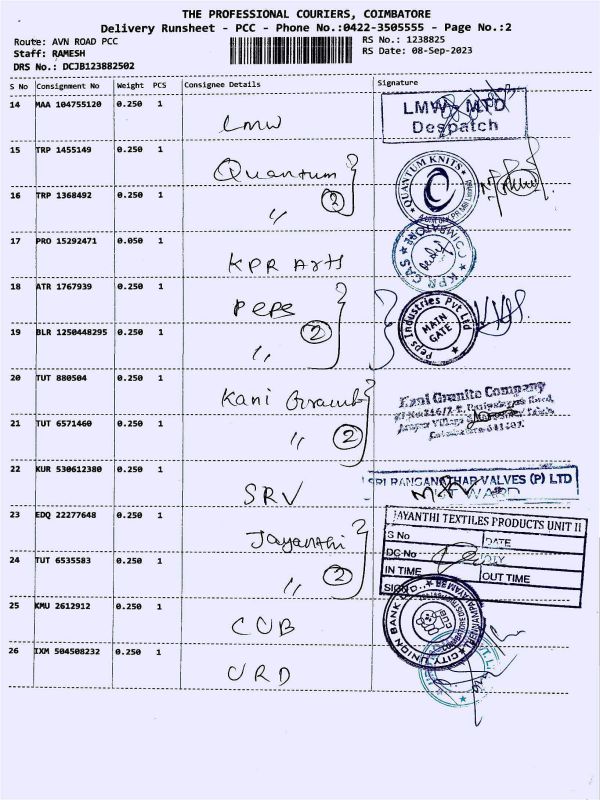 THE PROFESSIONAL COURIERS, COIMBATORE
Delivery Runsheet - PCC - Phone No.:0422-3505555 - Page No.:2
Route: AVN ROAD PCC
RS No.: 1238825
Staff: RAMESH
RS Date: 08-Sep-2023
DRS No.: DCJB123882502
S No Consignment No Weight PCS Consignee Details Signature
14 MAA 104755120 0.250 1 LMW
LMW - MTD
Despatch
15 TRP 1455149 0.250 1 Quantum
QUANTUM KNITS
16 TRP 1368492 0.250 1 " 2
17 PRO 15292471 0.050 1 KPR Arts
KPR CAS COIMBATORE
18 ATR 1767939 0.250 1 Peps
Peps Industries Pvt Ltd
MAIN GATE
19 BLR 1250448295 0.250 1 " 2
20 TUT 880504 0.250 1 Kani
Kani Granite Company
21 TUT 6571460 0.250 1 " 2
22 KUR 530612380 0.250 1 SRV
SRI RANGANATHAR VALVES (P) LTD
23 EDQ 22277648 0.250 1 Jayanthi
JAYANTHI TEXTILES PRODUCTS UNIT II
S No DATE
DC No
IN TIME OUT TIME
SIGN
24 TUT 6535583 0.250 1 " 2
25 KMU 2612912 0.250 1 CUB
CITY UNION BANK LTD.,
26 IXM 504508232 0.250 1 URD